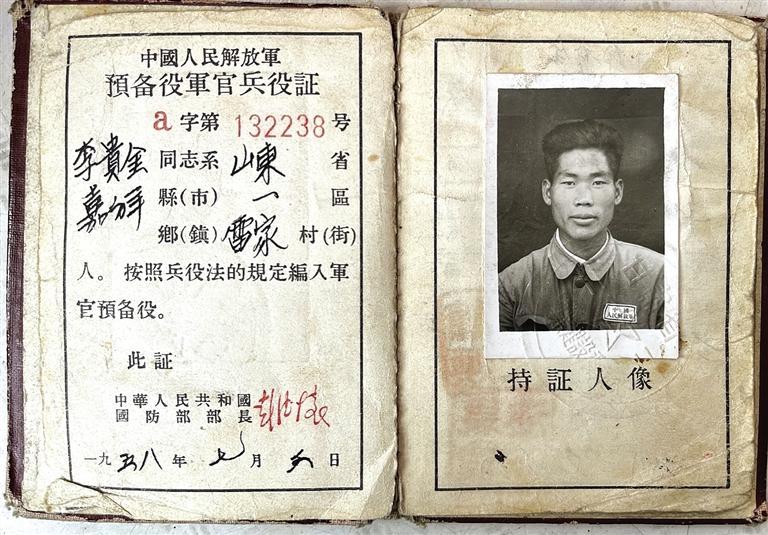 中國人民解放軍
預备役軍官兵役証
a字第 132238 号
李貴全 同志系 山東 省
嘉祥 縣(市) 一 區
鄉(鎮) 雷家 村(街)
人。按照兵役法的規定編入軍
官預备役。
此証
中華人民共和國
國防部部長 彭德懷
一九五八年七月 日
中國
人民解放軍
持証人像